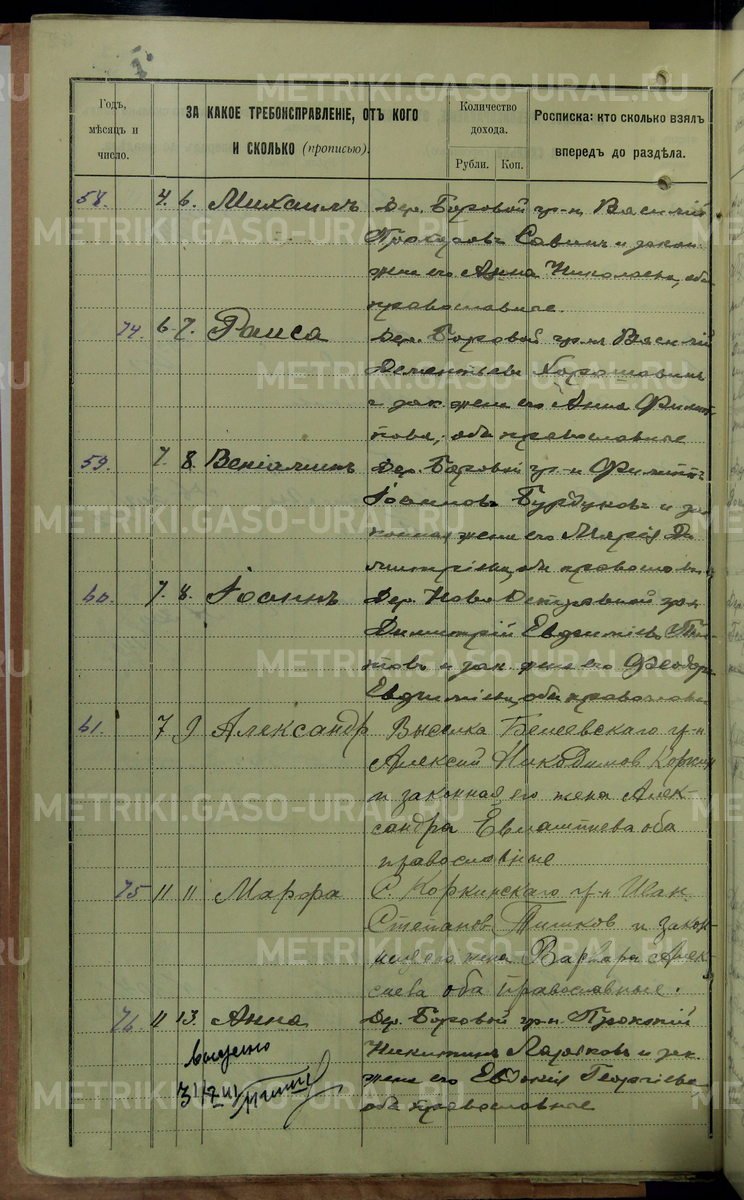 Годъ, мѣсяцъ и число.
ЗА КАКОЕ ТРЕБОИСПРАВЛЕНІЕ, ОТЪ КОГО И СКОЛЬКО (прописью).
Количество дохода.
Рубли. Коп.
Росписка: кто сколько взялъ впередъ до раздѣла.
58. 4. 6. Михаилъ Дер. Боровой гр-н Василій
Савинъ и закон.
жена его Анна Николаева, оба
православные.
74. 6. 7. Раиса Дер. Боровой гр-нъ Василій
Дементьевъ
и зак. жена его Анна Филип-
пова, оба православные
59. 7. 8. Веніаминъ Дер. Боровой гр-н Филиппъ
Іоанновъ Бурдуковъ и за-
конная жена его Марія Ди-
митріева, оба православн.
60. 7. 8. Іоаннъ Дер. Ново гр-н
Димитрій Евфиміевъ
и зак. жена его Феодора
Евфиміева, оба православн
61. 7 9 Александр Выселка гр-н
Алексий Никодимов Коркин
и законная его жена Алек-
сандра оба
православные
75 11 11 Марфа С. Коркинскаго гр-н Иван
Степанов и закон-
ная его жена Варвара Алек-
сиева оба православные.
76 11 13. Анна Дер. Боровой гр-н Прокопій
Никитинъ и зак.
жена его Евдокія Георгіева
оба православные
METRIKI.GASO-URAL.RU